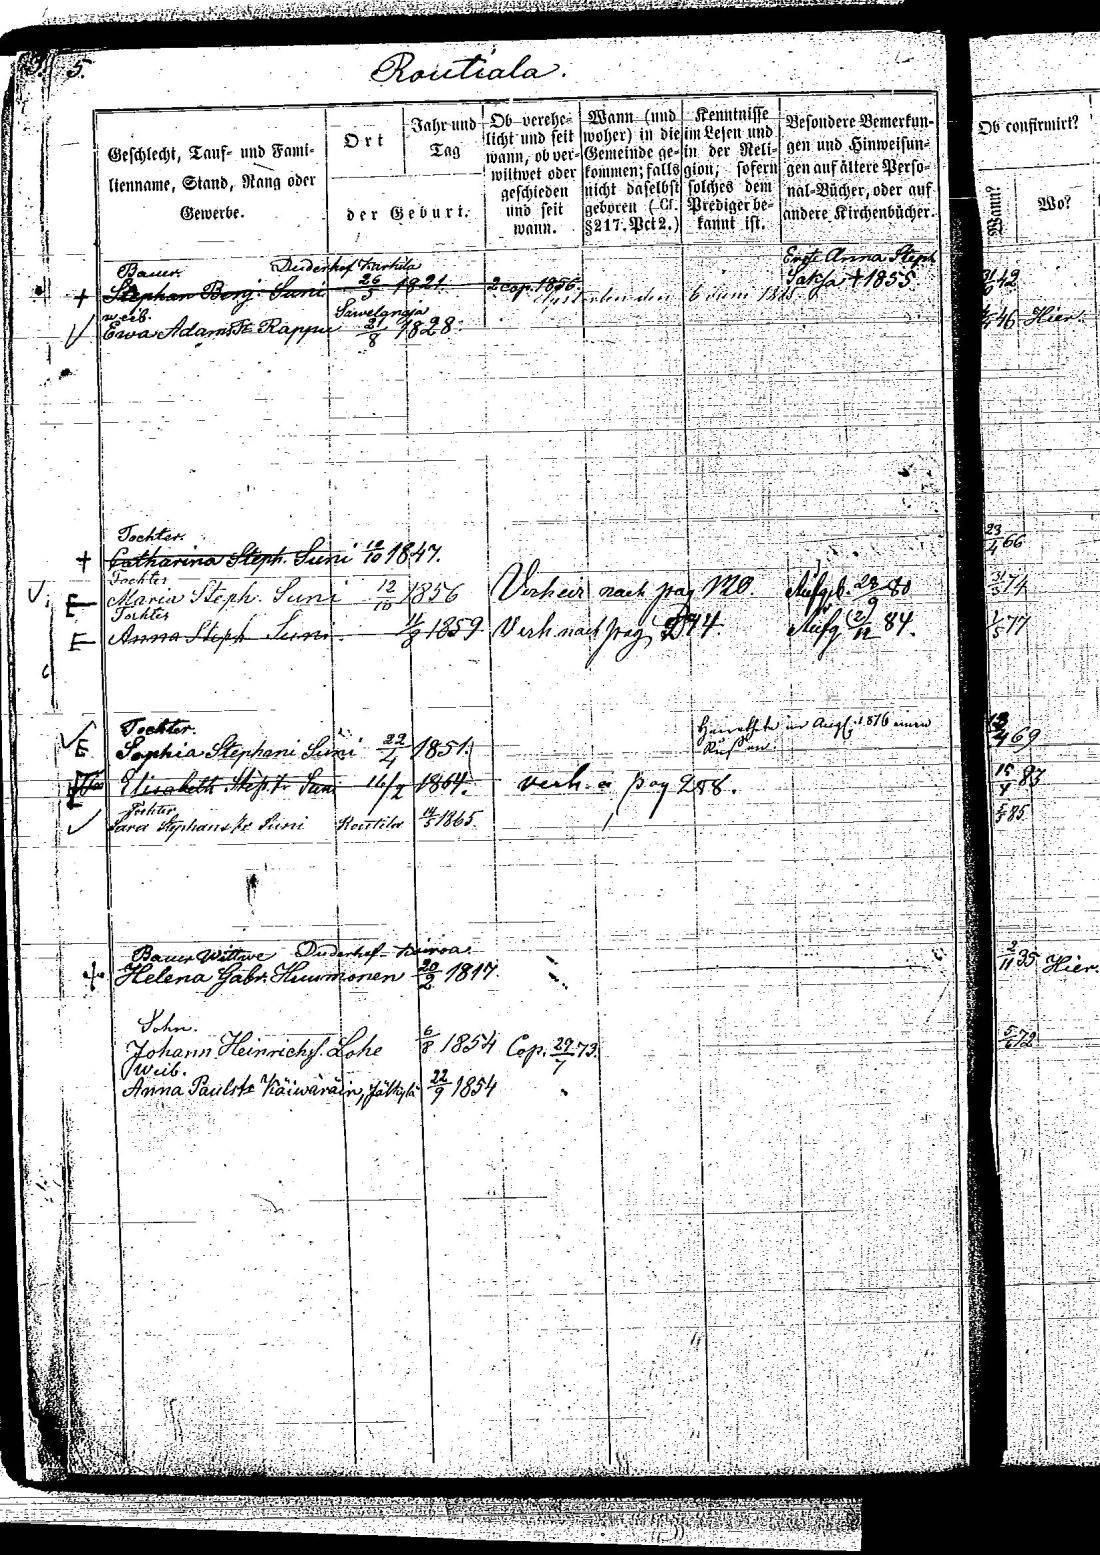 5.
Routiala.
Geschlecht, Tauf- und Fami-
lienname, Stand, Rang oder
Gewerbe.
Ort
Jahr und
Tag
der Geburt.
Ob verehe-
licht und seit
wann, ob ver-
wittwet oder
geschieden
und seit
wann.
Wann (und
woher) in die
Gemeinde ge-
kommen; falls
nicht daselbst
geboren (Cf.
§217. Pct 2.)
Kenntnisse
im Lesen und
in der Reli-
gion; sofern
solches dem
Prediger be-
kannt ist.
Besondere Bemerkun-
gen und Hinweisun-
gen auf ältere Perso-
nal-Bücher, oder auf
andere Kirchenbücher.
Ob confirmirt?
Wann?
Wo?
Bauer Duderhof Karkila Erste Anna Steph
+ Stephan Benj. Suni 26/5 1821 2 cop. 1856. 6 Juni Saksa + 1855 42
weib.
Ewa Adamstr Rappu 21/8 1828. 46 Hier.
Tochter.
+ Catharina Steph. Suni 12/10 1847. 23/4 66
Tochter
E Maria Steph. Suni 12/10 1856 Verheir nach pag 120. 74
Tochter
E Anna Steph Suni 1859 Verh. nach pag 84. 1/5 77
Tochter. Aug. 1876 einen
E Sophia Stephani Suni 22/4 1851. Russen. 69
Elisabeth Steph. tr Suni 16/2 1864. verh. a pag 258. 15/4 83
Tochter
Sara Stephanstr Suni Routila 14/5 1865 85
Bauer Wittwe Duderhof-
Helena Gabr. Huumonen 20/2 1817. 2/11 35 Hier.
Sohn.
Johann Heinrichs. Lohe 6/8 1854 Cop. 27/7 73. 72
Weib.
Anna Paulstr Käiwäräin, Jälkylä 22/9 1854